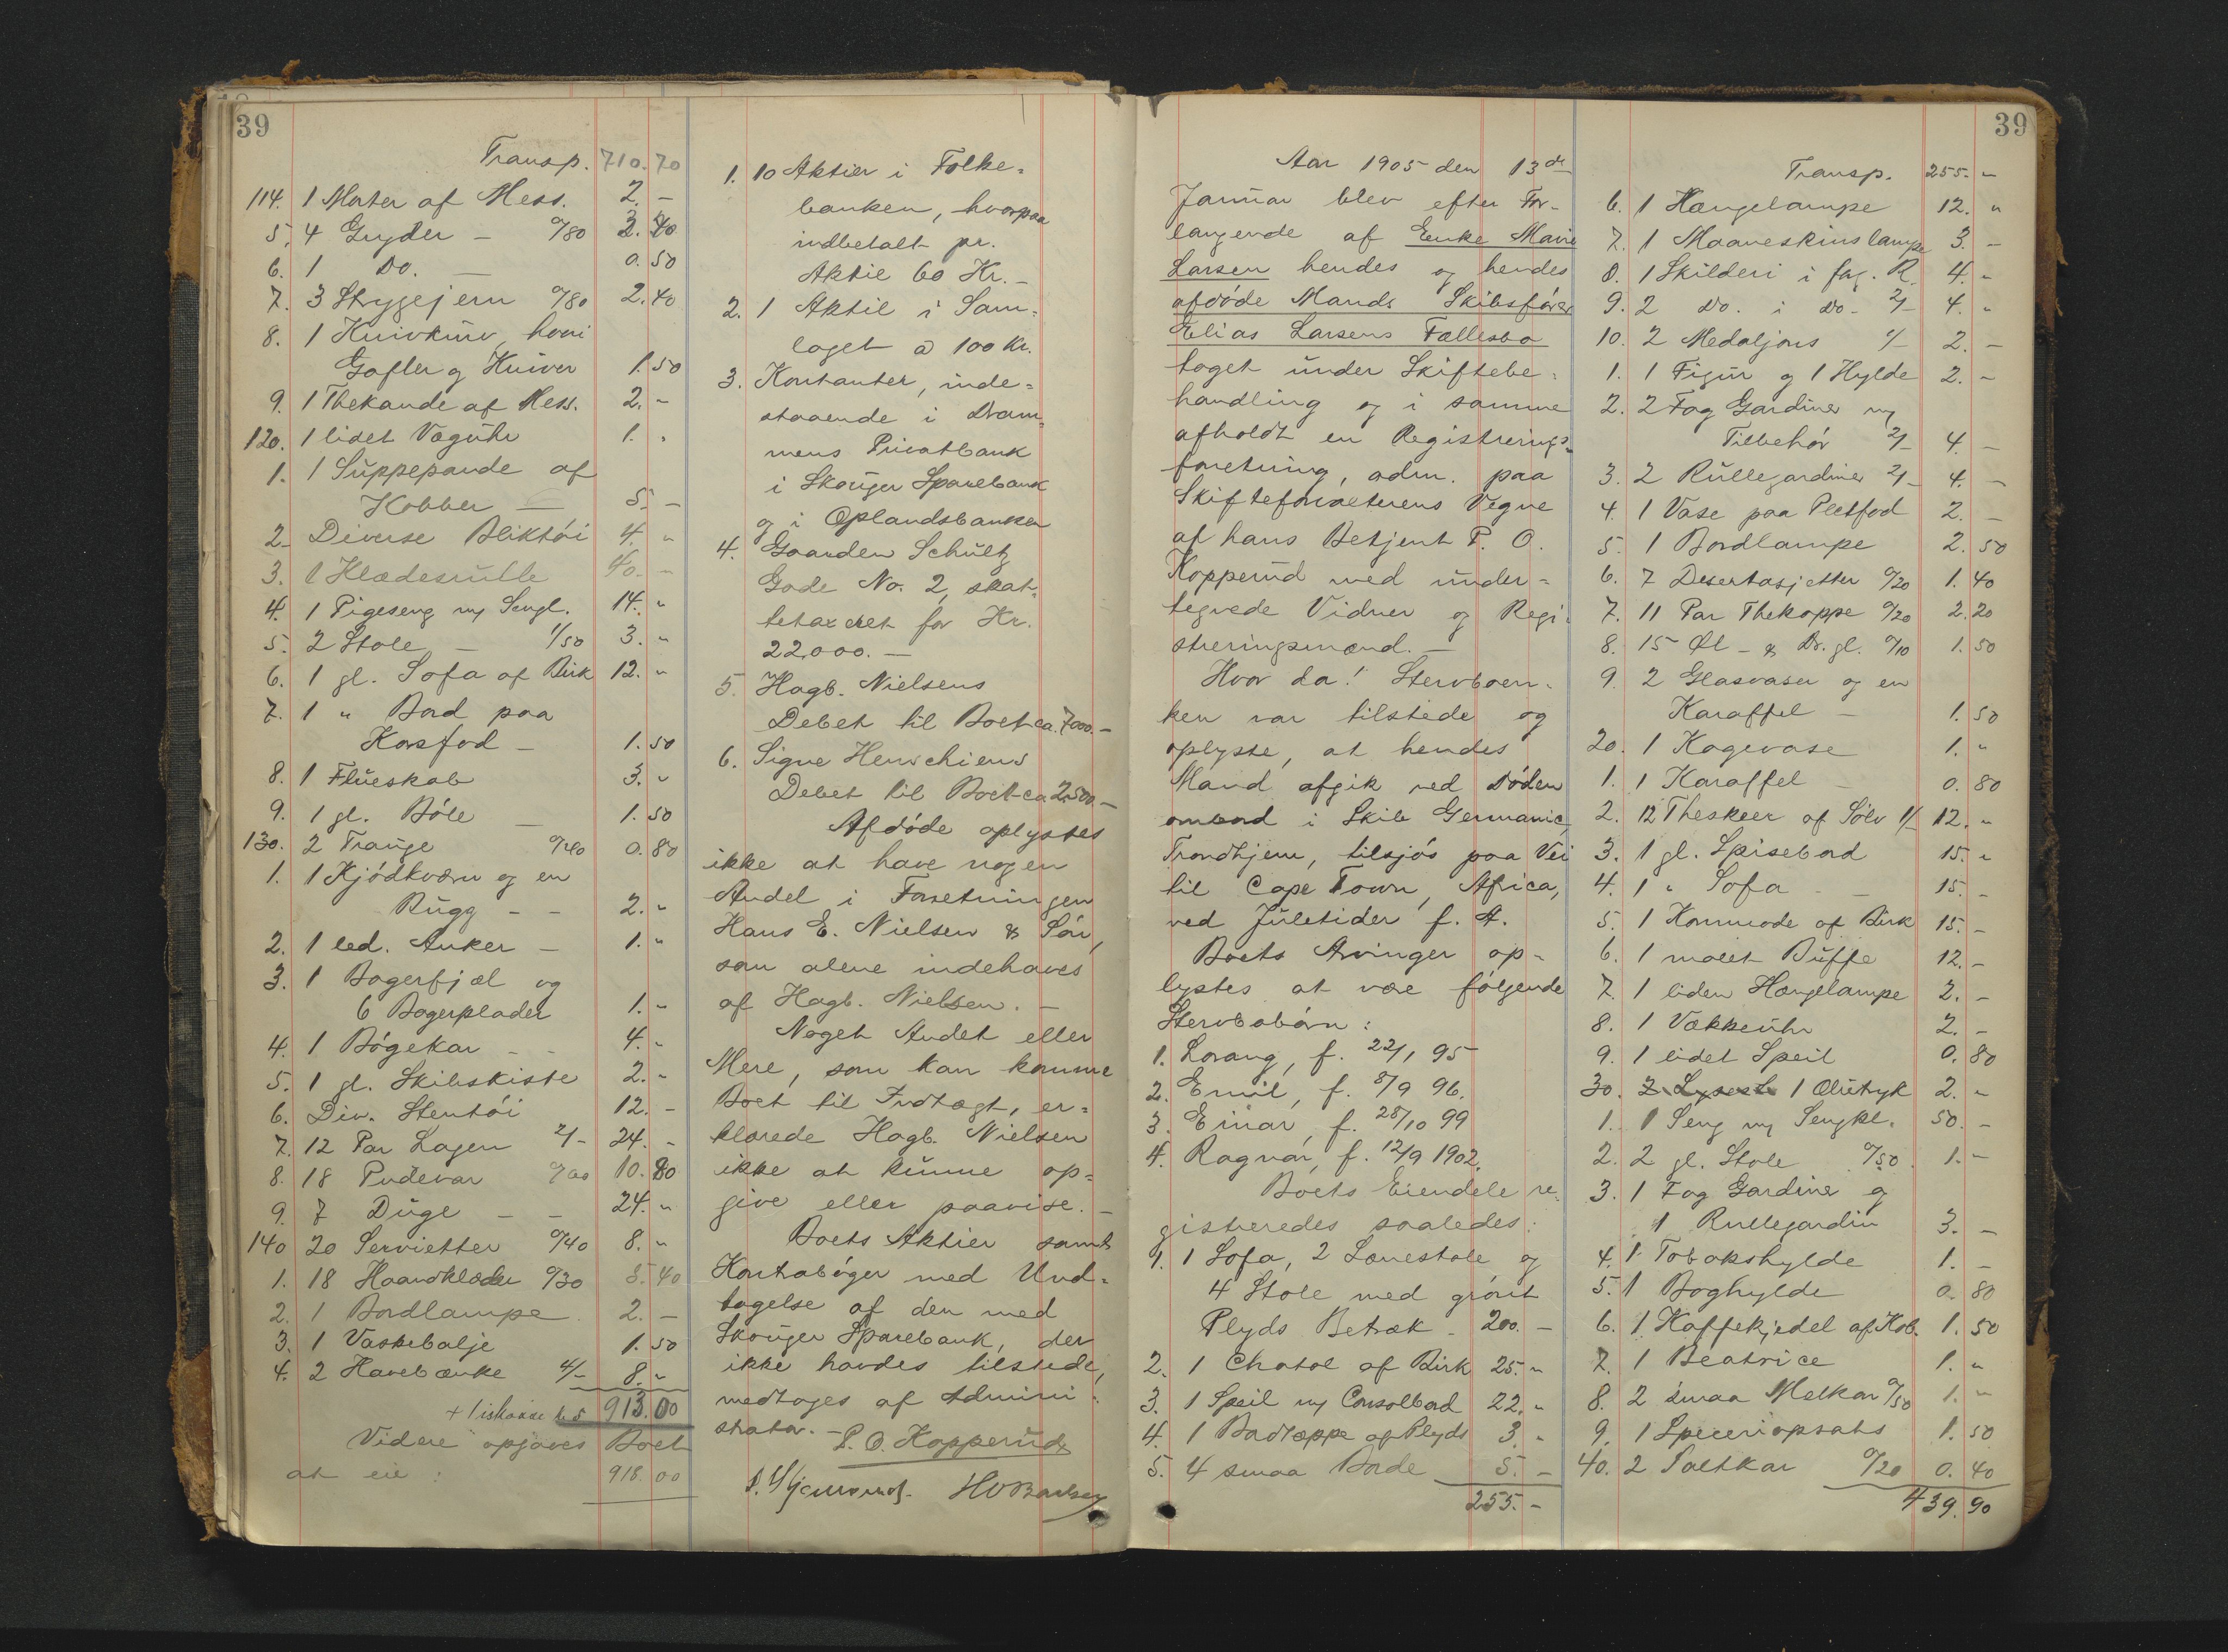 39
Transp. 710.70
114. 1 Morter af Mess. 2. –
5. 4 Gryder – 0/80 3.20
6. 1 Do. – 0.50
7. 3 Strygejern 0/80 2.40
8. 1 Knivkurv, hvori
Gafler og Kniver 1.50
9. 1 Thekande af Mess. 2. –
120. 1 lidet Væguhr 1. "
1. 1 Suppepande af
Kobber – 5. –
2. Diverse Bliktöi 4. "
3. 1 Klædesrulle 40. –
4. 1 Pigeseng m/ Sengl. 14. "
5. 2 Stole – 1/50 3. "
6. 1 gl. Sofa af Birk 12. "
7. 1 " Bord paa
Korsfod – 1.50
8. 1 Flueskab 3. "
9. 1 gl. Böle – 1.50
130. 2 Trauge 0/40 0.80
1. 1 Kjödkværn og en
Rugg – – 2. "
2. 1 led. Anker – 1. "
3. 1 Bagerfjæl og
6 Bagerplader 1. "
4. 1 Bögekar – – 4. "
5. 1 gl. Skibskiste 2. "
6. Div. Stentöi 12. –
7. 12 Par Lagen 2/– 24. –
8. 18 Pudevar 0/60 10.80
9. 7 Duge – – 24. "
140 20 Servietter 0/40 8. "
1. 18 Haandklæder 0/30 5.40
2. 1 Bordlampe 2. –
3. 1 Vaskebalje 1.50
4. 2 Havebænke 4/– 8. "
913.00
Videre opgaves Boet
at eie : 918.00
1. 10 Aktier i Folke-
banken, hvorpaa
indbetalt pr.
Aktie 60 Kr. –
2. 1 Aktie i Sam-
laget a 100 Kr.
3. Kontanter, inde-
staaende i Dram-
mens Privatbank
i Skouger Sparebank
og i Oplandsbanken
4. Gaarden Schultz
Gade No. 2, skat-
tetaxeret for Kr.
22,000. –
5. Hagb. Nielsens
Debet til Boet ca. 7000. –
6. Signe Henschiens
Debet til Boet ca. 2500 –
Afdöde oplystes
ikke at have nogen
Andel i Forretningen
Hans E. Nielsen & Sön,
som alene indehaves
af Hagb. Nielsen. –
Noget Andet eller
Mere, som kan komme
Boet til Indtægt, er-
klærede Hagb. Nielsen
ikke at kunne op-
give eller paavise. –
Boets Aktier samt
Kontrabøger med Und-
tagelse af den med
Skouger Sparebank, der
ikke havdes tilstede,
medtoges af Admini-
strator. –
P. O. Kopperud
39
Aar 1905 den 13de
Januar blev efter For-
langende af Enke Marie
Larsen hendes og hendes
afdöde Mands Skibsförer
Elias Larsens Fællesbo
taget under Skiftebe-
handling og i samme
afholdt en Registrerings-
forretning, adm. paa
Skifteforvalterens Vegne
af hans Betjent P. O.
Kopperud med under-
tegnede Vidner og Regi-
streringsmænd. –
Hvor da! Stervboen-
ken var tilstede og
oplyste, at hendes
Mand afgik ved Döden
ombord i Skib Germanic,
Trondhjem, tilsjös paa Vei
til Cape Town, Africa,
ved Juletider f. A.
Boets Arvinger op-
lystes at være følgende
Stervbobörn :
1. Lorang, f. 22/1 95
2. Emil, f. 8/9 96.
3. Einar, f. 28/10 99
4. Ragnar, f. 12/9 1902.
Boets Eiendele re-
gistreredes saaledes :
1. 1 Sofa, 2 Lænestole og
4 Stole med grönt
Plyds Betræk – 200. –
2. 1 Chatol af Birk 25. "
3. 1 Speil m/ Consolbord 22. "
4. 1 Bordtæppe af Plyds 3. "
5. 4 smaa Borde 5. –
255. –
Transp. 255. "
6. 1 Hængelampe 12. "
7. 1 Maaneskinslampe 3. –
8. 1 Skilderi i fog. R. 4. "
9. 2 Do. i Do. 2/– 4. "
10. 2 Medaljons 1/– 2. –
1. 1 Figur og 1 Hylde 2. –
2. 2 Fag Gardiner m/
Tilbehör 2/– 4. –
3. 2 Rullegardiner 2/– 4. –
4. 1 Vase paa Pletfod 2. –
5. 1 Bordlampe 2.50
6. 7 Desertasjetter 0/20 1.40
7. 11 Par Thekoppe 0/20 2.20
8. 15 Öl – & Dr. gl. 0/10 1.50
9. 2 Glasvaser og en
Karaffel – 1.50
20. 1 Kagevase 1. "
1. 1 Karaffel – 0.80
2. 12 Theskeer af Sölv 1/– 12. "
3. 1 gl. Spisebord 15. "
4. 1 " Sofa – – 15. –
5. 1 Kommode af Birk 15. –
6. 1 malet Buffe 12. –
7. 1 liden Hængelampe 2. –
8. 1 Vækkeuhr 2. –
9. 1 lidet Speil 0.80
30. 1 Olietryk 2. "
1. 1 Seng m/ Sengkl. 50. –
2. 2 gl. Stole 0/50 1. –
3. 1 Fag Gardiner og
1 Rullegardin 3. –
4. 1 Tobakshylde 1. –
5. 1 Boghylde 0.80
6. 1 Kaffekjedel af Kob. 1.50
7. 1 Beatrice 1. "
8. 2 smaa Melkar 0/50 1. "
9. 1 Speceriopsats 1.50
40. 2 Saltkar 0/20 0.40
439.90